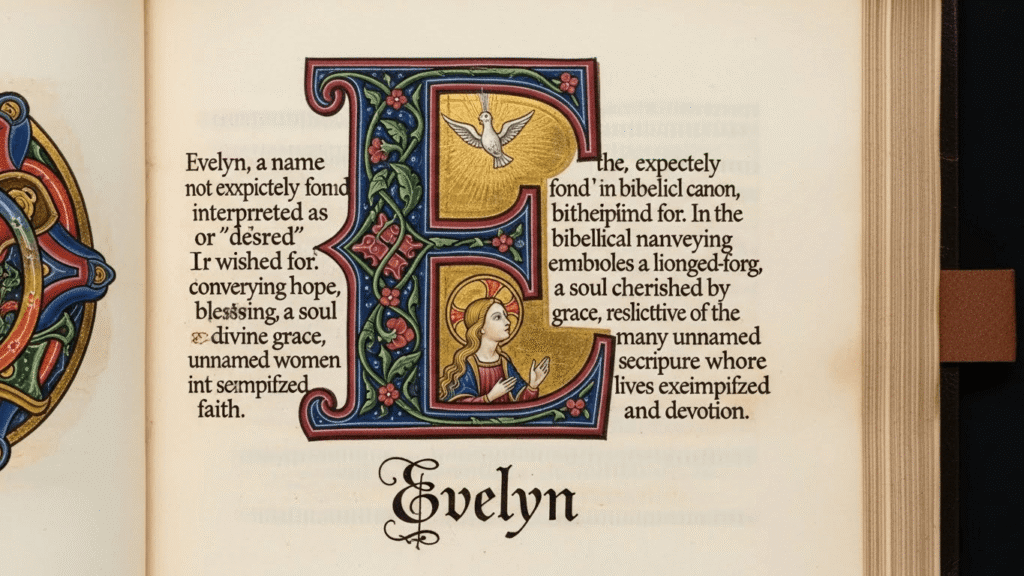 Evelyn, a name
not exxpictely fonnd
interprreted as
or "desred"
Ir wished for:
converying hope,
blessing, a soul
divine grace,
unnamed women
int sempifized
faith.
the, expectely
fond' in bibelicl canon,
bitheiplind for. In the
bibellical nanveying
embioles a lionged-forg,
a soul cherished by
grace, reslicttive of the
many unnamed
secripure whore
lives exeimpifized
and devotion.
Evelyn